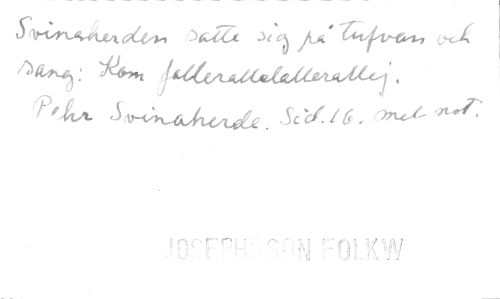 Svinaherden satte sig på tufvan och
sang: Kom fallerallelallerallej.
Pehr Svinaherde. Sid. 16. met not.
JOSEPHSSON FOLKW